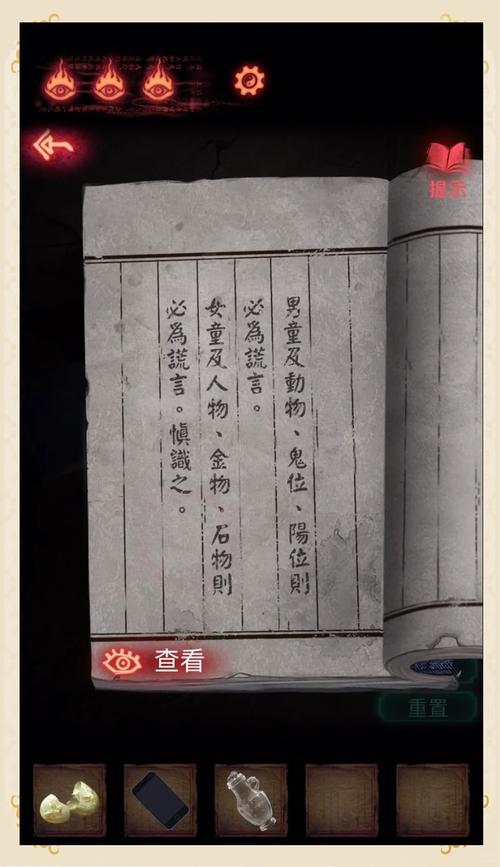 提示
男童及動物、鬼位、陽位則
必為謊言。
女童及人物、金物、石物則
必為謊言。慎識之。
查看
重置